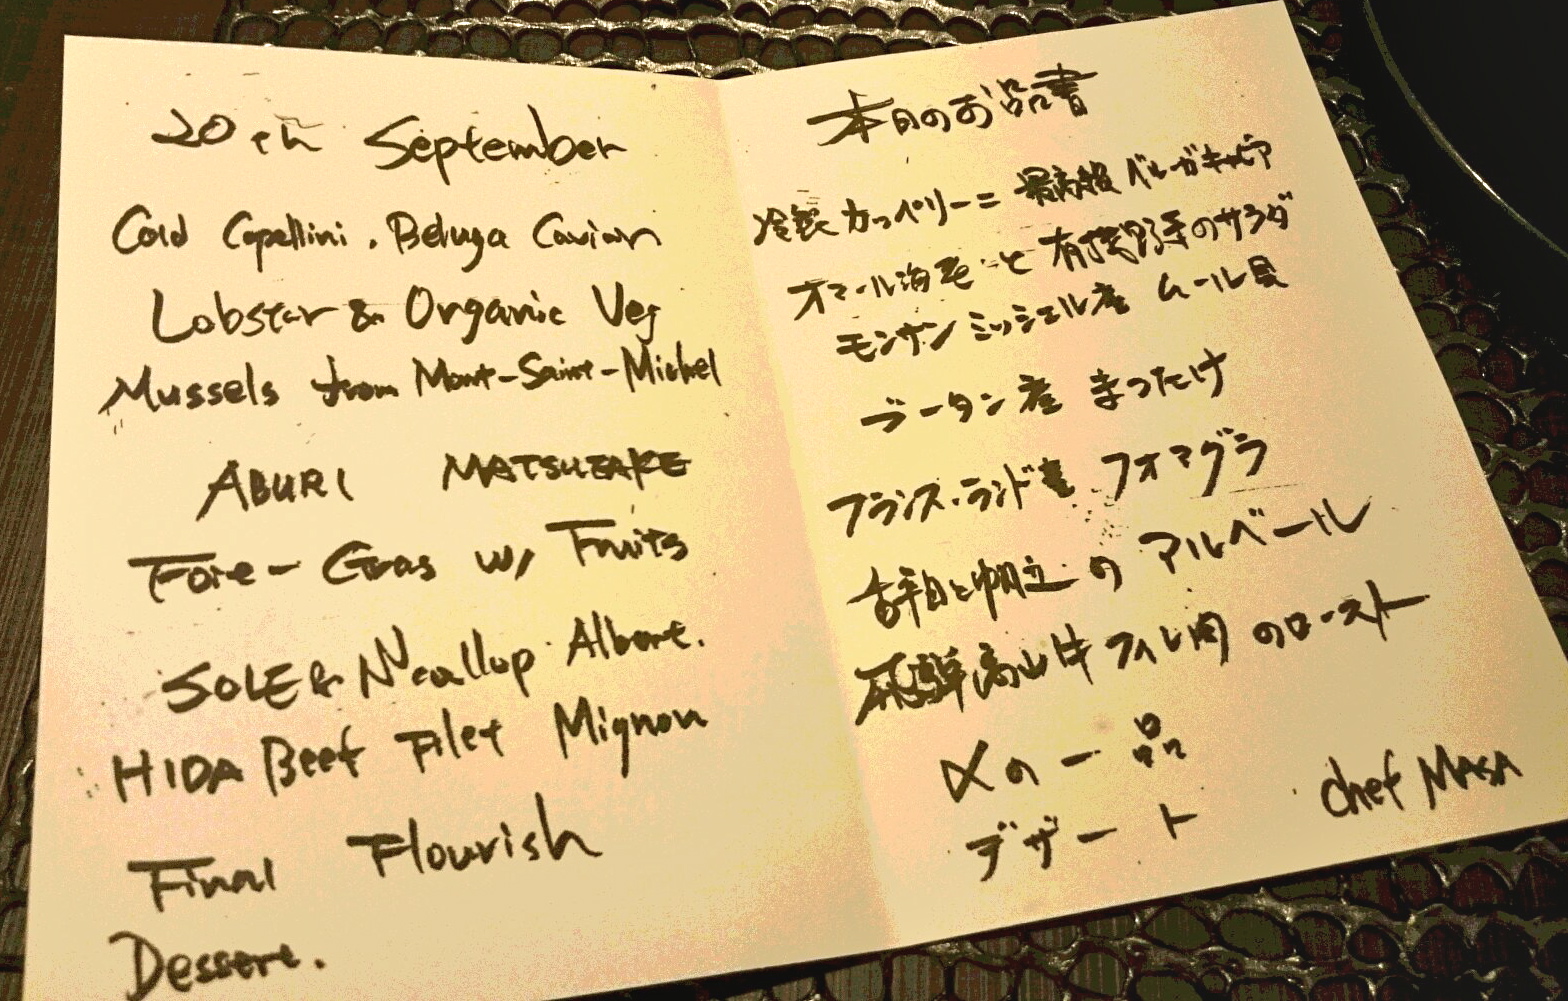 20th September
Cold Capellini, Beluga Caviar
Lobster & Organic Veg
Mussels from Mont-Saint-Michel
ABURI MATSUTAKE
Foie-Gras w/ Fruits
SOLE & Scallop Albert.
HIDA Beef Filet Mignon
Final Flourish
Dessert.
本日のお品書
冷製カッペリーニ 最高級 ベルーガキャビア
オマール海老と有機野菜のサラダ
モンサンミッシェル産 ムール貝
ブータン産 まつたけ
フランス・ランド産 フォアグラ
舌平目と帆立のアルベール
飛騨高山牛フィレ肉のロースト
〆の一品
デザート
chef MASA